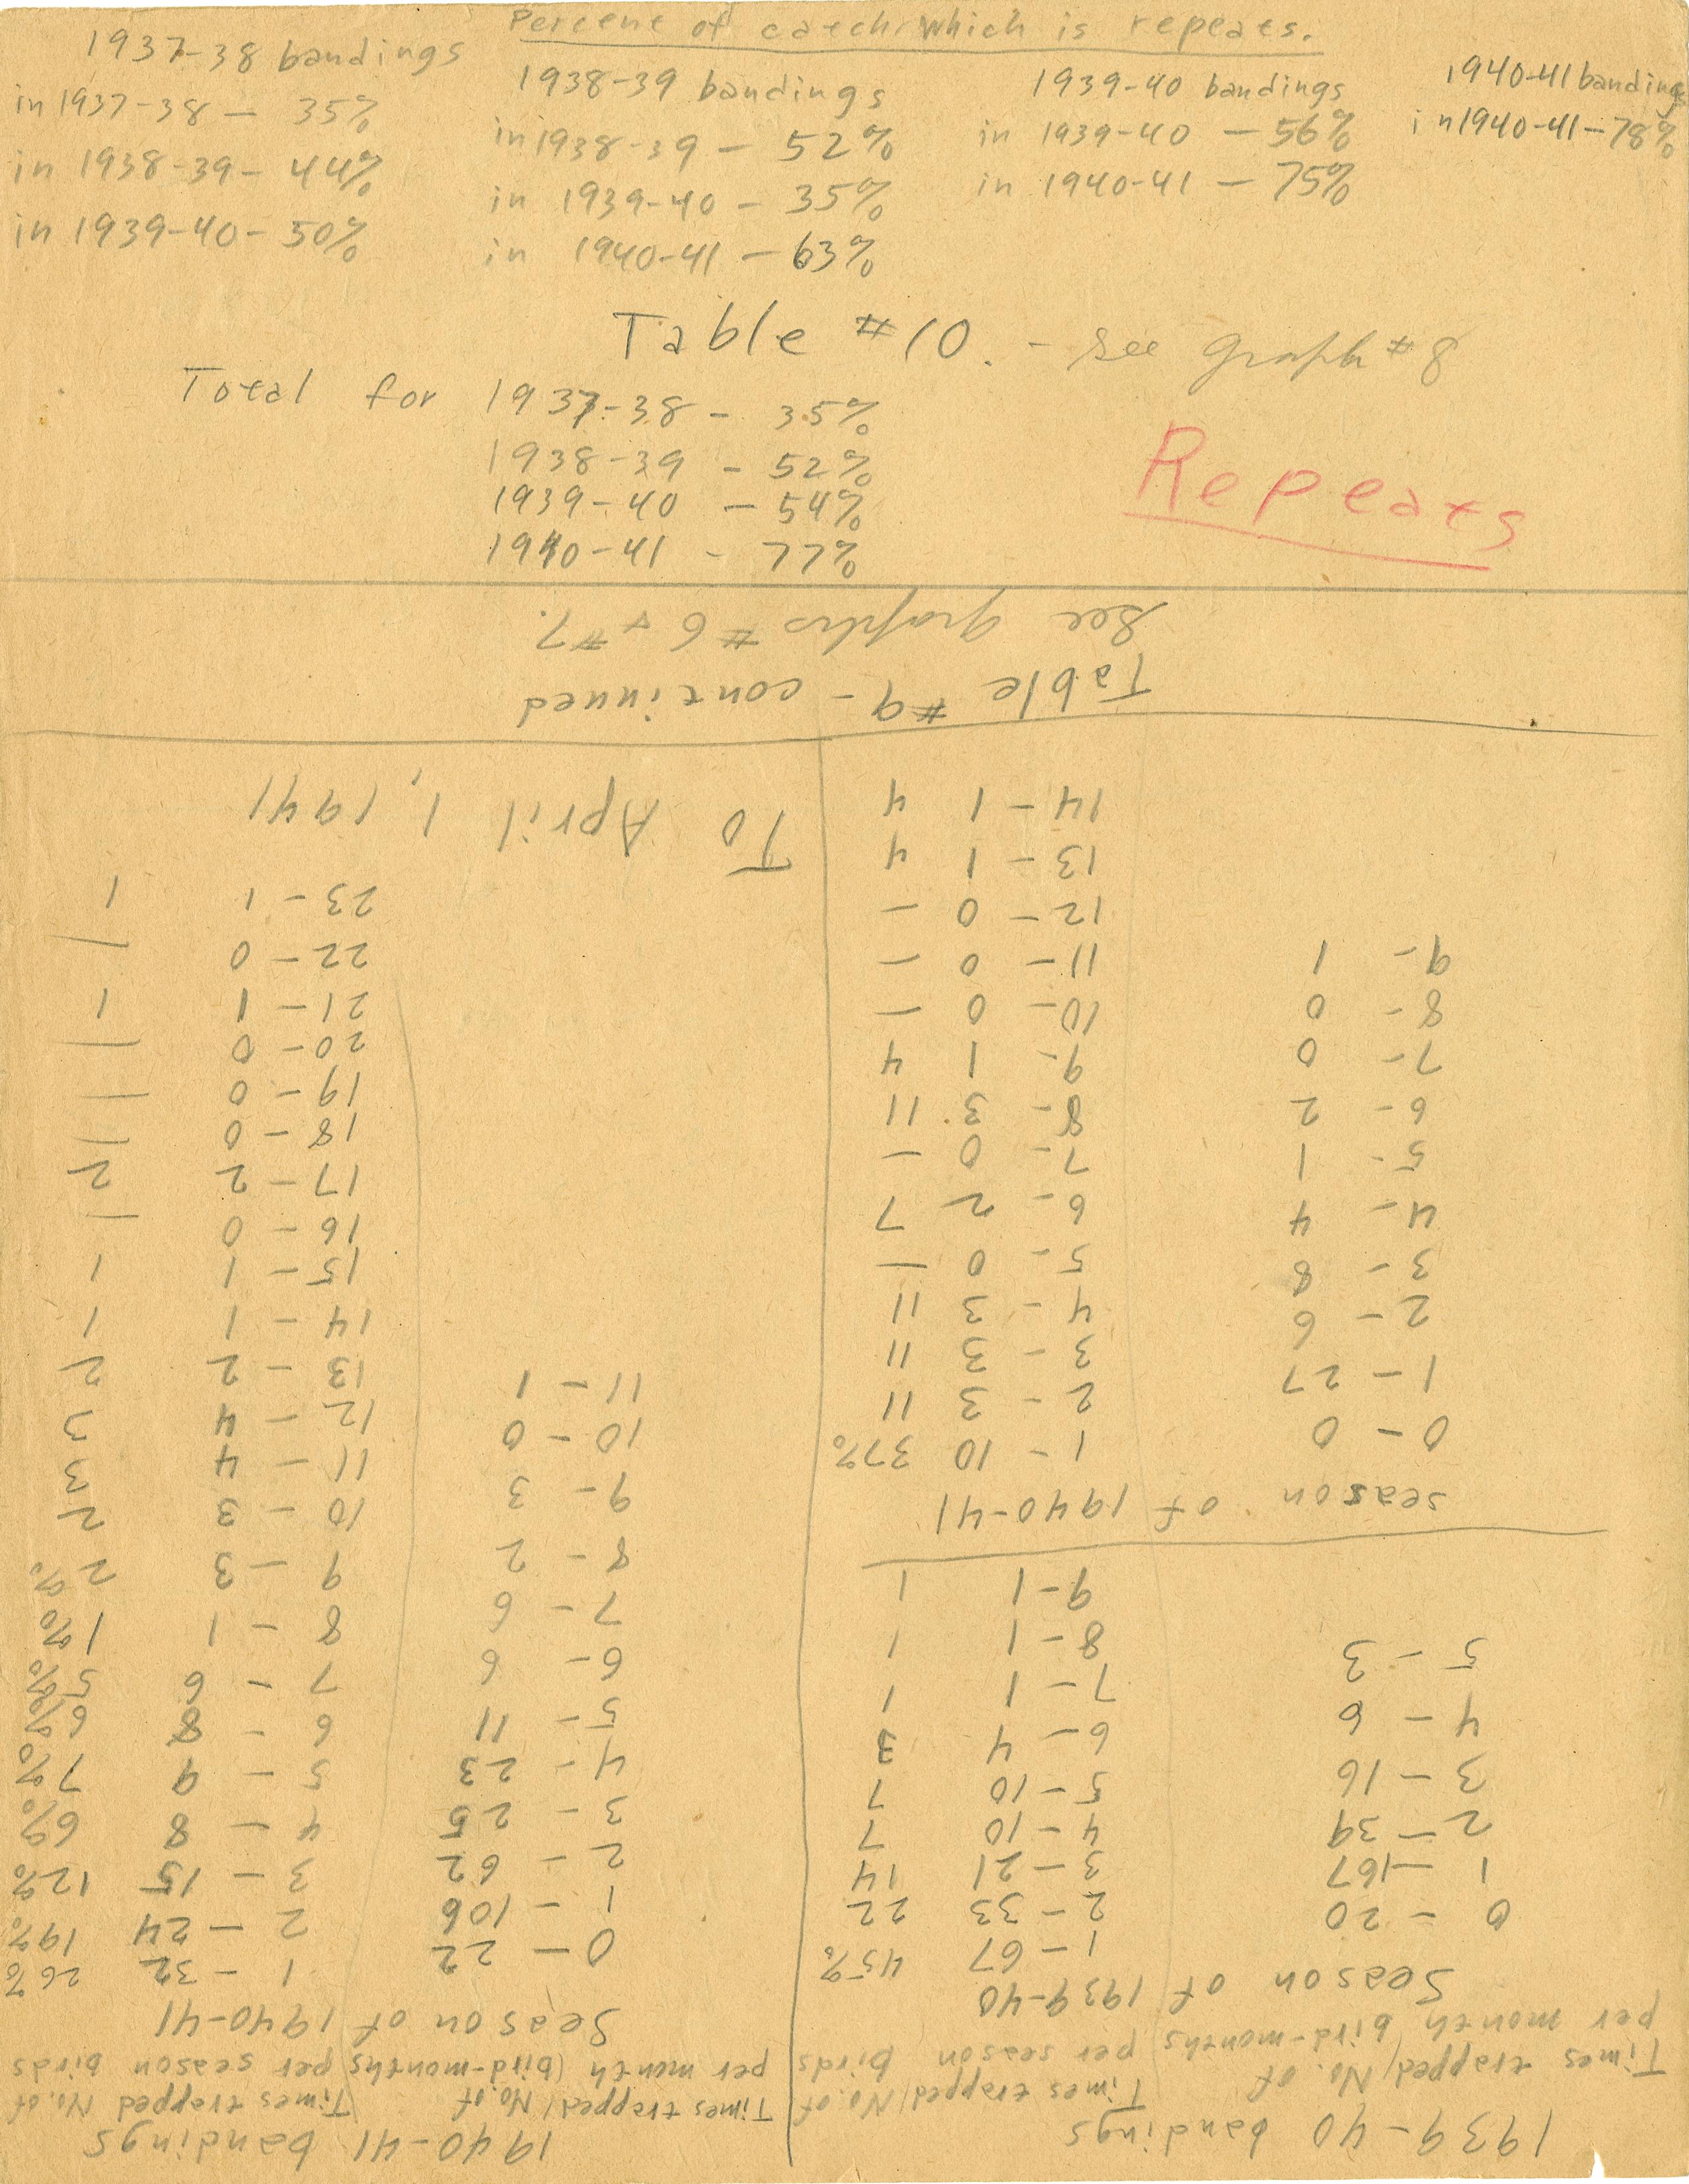 Percent of catch which is repeats.
1937-38 bandings
in 1937-38 — 35%
in 1938-39 - 44%
in 1939-40 - 50%
1938-39 bandings
in 1938-39 — 52%
in 1939-40 - 35%
in 1940-41 - 63%
1939-40 bandings
in 1939-40 — 56%
in 1940-41 — 75%
1940-41 bandings
in 1940-41 - 78%
Table #10. - see graph #8
Total for 1937-38 - 35%
1938-39 - 52%
1939-40 - 54%
1940-41 - 77%
Repeats
1939-40 bandings
Times trapped per month
No. of bird-months
Times trapped per season
No. of birds
Season of 1939-40
0 - 20
1 - 167
2 - 39
3 - 16
4 - 6
5 - 3
1 - 67 45%
2 - 33 22
3 - 21 14
4 - 10 7
5 - 10 7
6 - 4 3
7 - 1 1
8 - 1 1
9 - 1 1
season of 1940-41
0 - 0
1 - 27
2 - 6
3 - 8
4 - 4
5 - 1
6 - 2
7 - 0
8 - 0
9 - 1
1 - 10 37%
2 - 3 11
3 - 3 11
4 - 3 11
5 - 0 —
6 - 2 7
7 - 0 —
8 - 3 11
9 - 1 4
10 - 0 —
11 - 0 —
12 - 0 —
13 - 1 4
14 - 1 4
1940-41 bandings
Times trapped per month
No. of (bird-months
Times trapped per season
No. of birds
Season of 1940-41
0 - 22
1 - 106
2 - 62
3 - 25
4 - 23
5 - 11
6 - 6
7 - 6
8 - 2
9 - 3
10 - 0
11 - 1
1 - 32 26%
2 - 24 19%
3 - 15 12%
4 - 8 6%
5 - 9 7%
6 - 8 6%
7 - 6 5%
8 - 1 1%
9 - 3 2%
10 - 3 2
11 - 4 3
12 - 4 3
13 - 2 2
14 - 1 1
15 - 1 1
16 - 0 —
17 - 2 2
18 - 0 —
19 - 0 —
20 - 0 —
21 - 1 1
22 - 0 —
23 - 1 1
To April 1, 1941
Table #9 - continued
See graphs #6 + #7.